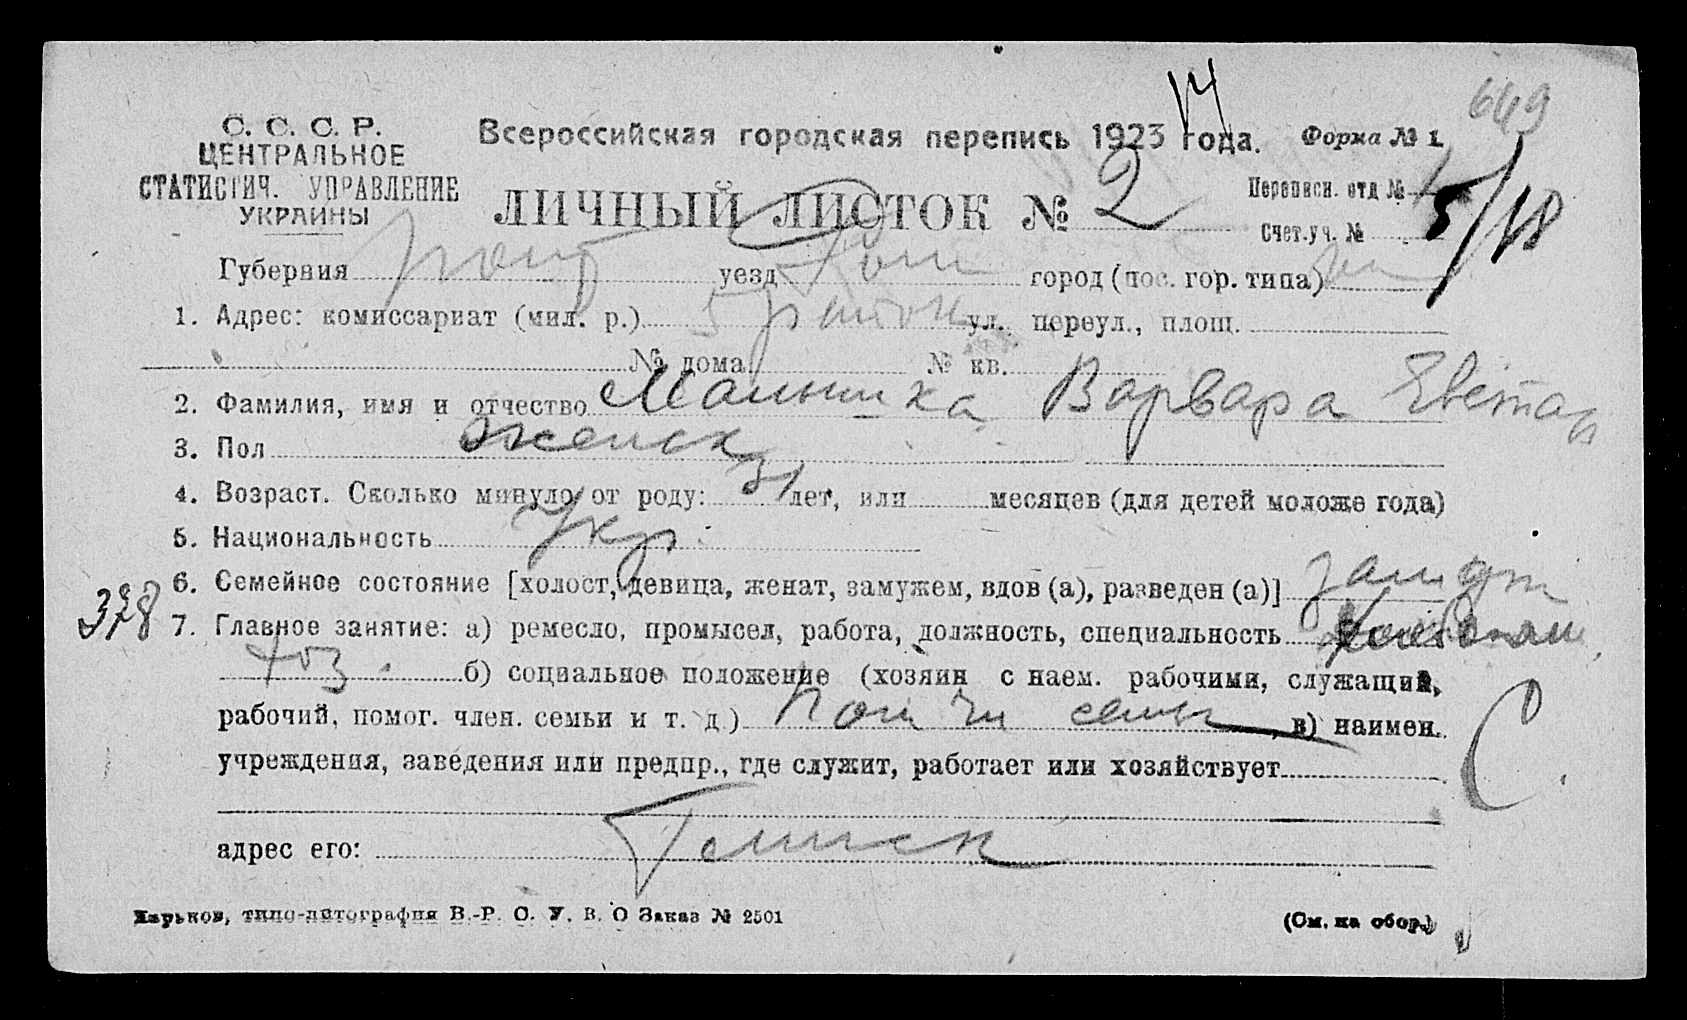 649
С. С. С. Р.
ЦЕНТРАЛЬНОЕ
СТАТИСТИЧ. УПРАВЛЕНИЕ
УКРАИНЫ
Всероссийская городская перепись 1923 года. Форма № 1.
ЛИЧНЫЙ ЛИСТОК № 2
Переписн. отд №
Счет.уч. № 5/18
Губерния уезд Ром город (пос. гор. типа)
1. Адрес: комиссариат (мил. р.) 5 район ул., переул., площ.
№ дома № кв.
2. Фамилия, имя и отчество Варвара Евстар
3. Пол женск
4. Возраст. Сколько минуло от роду: 31 лет, или месяцев (для детей моложе года)
5. Национальность Укр.
6. Семейное состояние [холост, девица, женат, замужем, вдов (а), разведен (а)] замуж
378
7. Главное занятие: а) ремесло, промысел, работа, должность, специальность
хоз. б) социальное положение (хозяин с наем. рабочими, служащий,
рабочий, помог. член. семьи и т. д.) пом чл семьи, в) наимен.
учреждения, заведения или предпр., где служит, работает или хозяйствует
С
адрес его: Глинск
Харьков, типо-литография В.-Р. О. У. В. О Заказ № 2501
(См. на обор.)